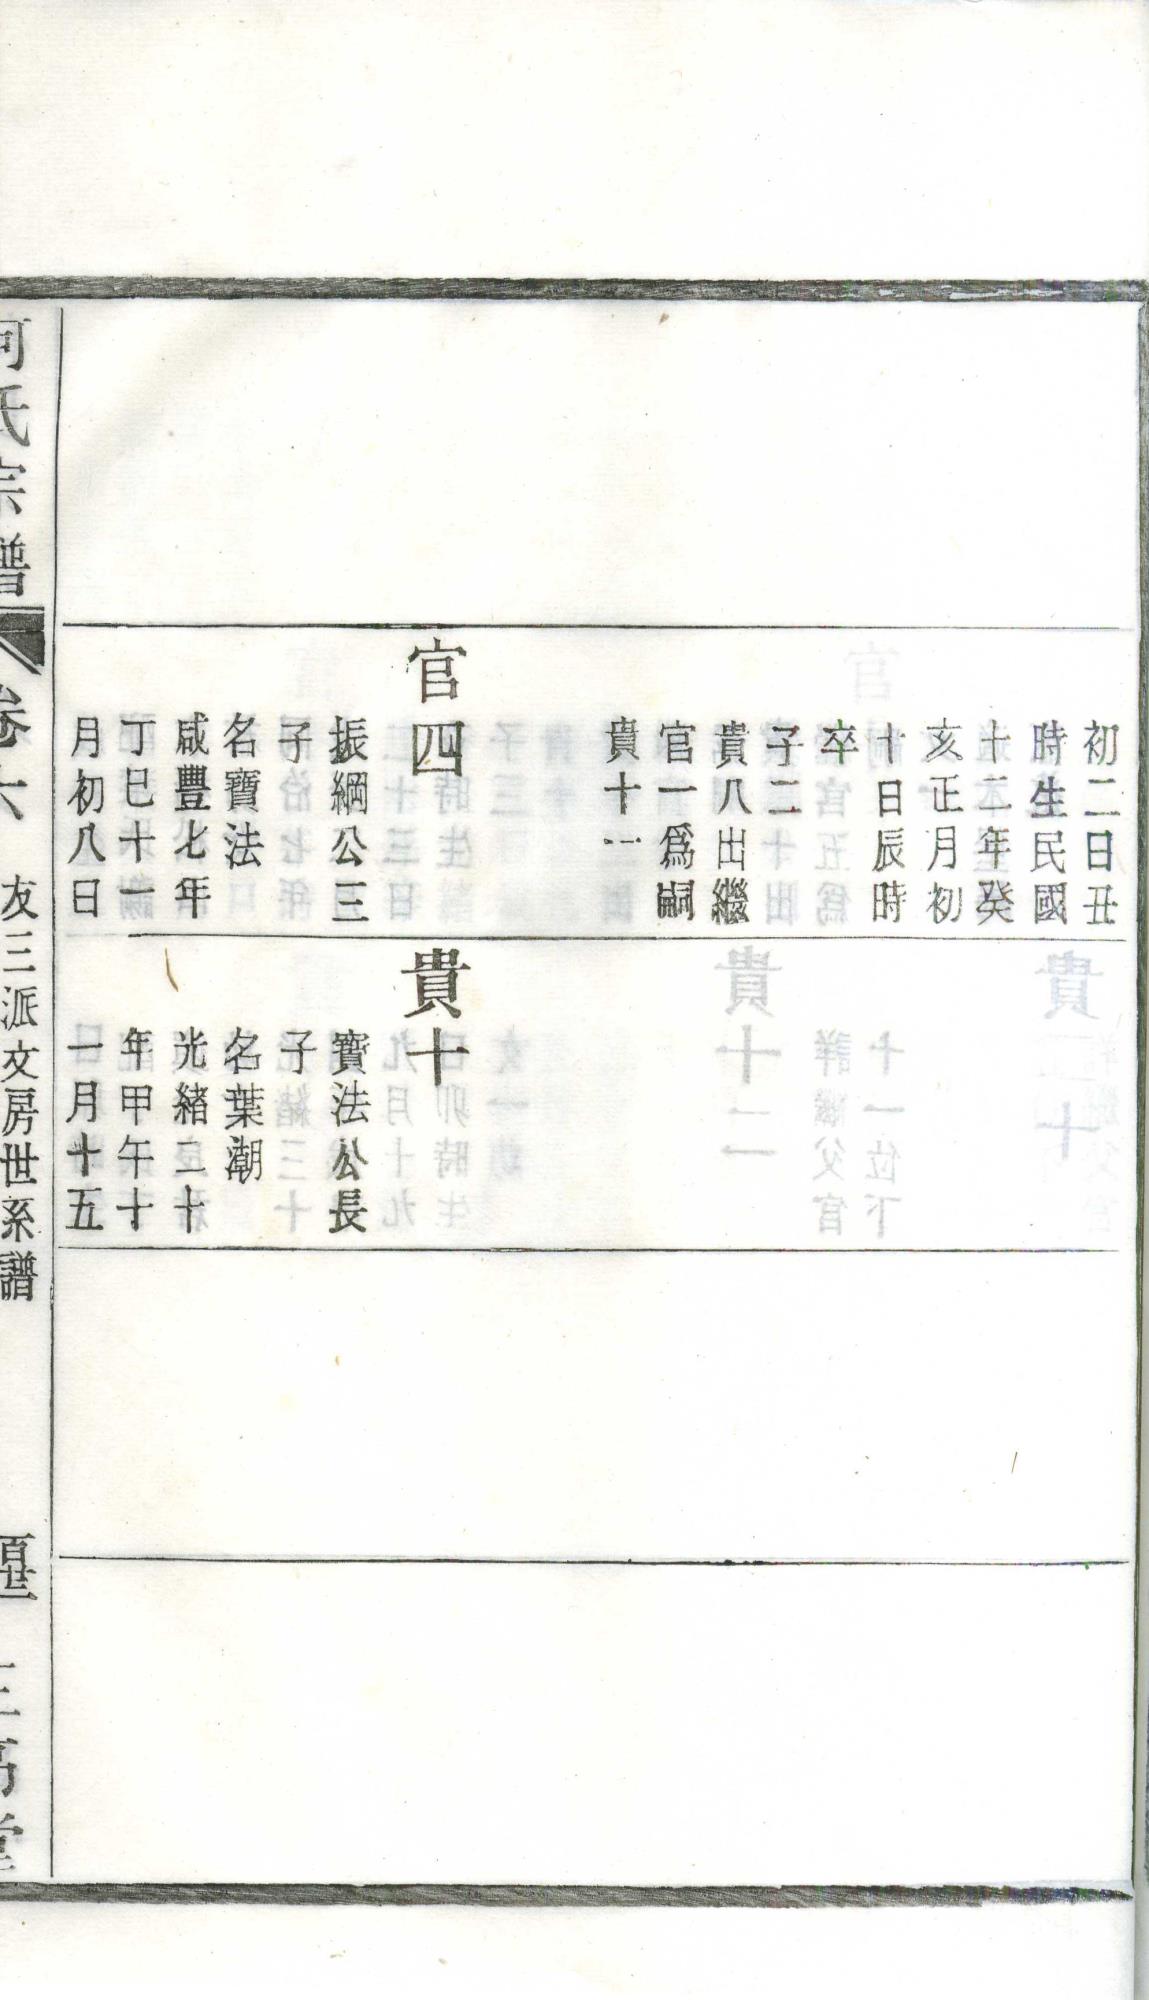 初二日丑
時生民國
十二年癸
亥正月初
十日辰時
卒
子二
貴八出繼
官一爲嗣
貴十一
官四
振綱公三
子
名寶法
咸豐七年
丁巳十一
月初八日
貴十
寶法公長
子
名葉潮
光緒二十
年甲午十
一月十五
何氏宗譜
卷六
友三派文房世系譜